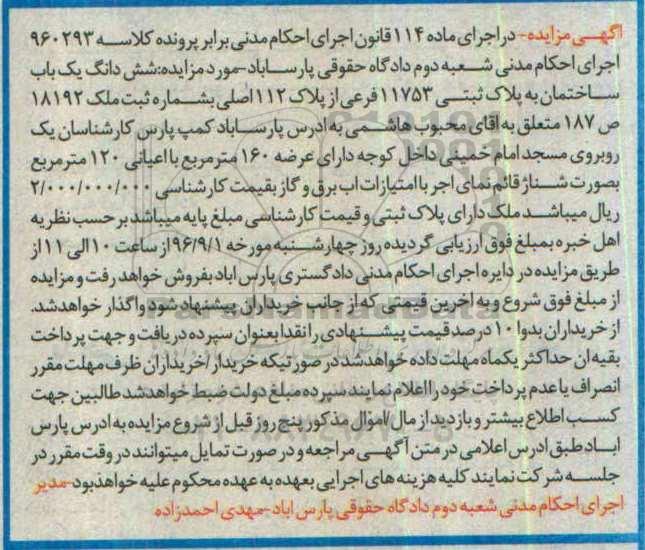 آگهی مزایده- دراجرای ماده ۱۱۴ قانون اجرای احکام مدنی برابر پرونده کلاسه ۹۶۰۲۹۳
اجرای احکام مدنی شعبه دوم دادگاه حقوقی پارساباد-مورد مزایده:شش دانگ یک باب
ساختمان به پلاک ثبتی ۱۱۷۵۳ فرعی از پلاک ۱۱۲ اصلی بشماره ثبت ملک ۱۸۱۹۲
ص ۱۸۷ متعلق به آقای محبوب هاشمی به ادرس پارساباد کمپ پارس کارشناسان یک
روبروی مسجد امام خمینی داخل کوچه دارای عرضه ۱۶۰ مترمربع با اعیانی ۱۲۰ مترمربع
بصورت شناژ قائم نمای اجر با امتیازات اب برق و گاز بقیمت کارشناسی ۲/۰۰۰/۰۰۰/۰۰۰
ریال میباشد ملک دارای پلاک ثبتی و قیمت کارشناسی مبلغ پایه میباشد بر حسب نظریه
اهل خبره بمبلغ فوق ارزیابی گردیده روز چهارشنبه مورخه ۹۶/۹/۱ از ساعت ۱۰ الی ۱۱ از
طریق مزایده در دایره اجرای احکام مدنی دادگستری پارس اباد بفروش خواهد رفت و مزایده
از مبلغ فوق شروع و به اخرین قیمتی که از جانب خریداران پیشنهاد شود واگذار خواهدشد.
از خریداران بدوا ۱۰ درصد قیمت پیشنهادی را نقدا بعنوان سپرده دریافت و جهت پرداخت
بقیه ان حداکثر یکماه مهلت داده خواهدشد در صورتیکه خریدار/خریداران ظرف مهلت مقرر
انصراف یا عدم پرداخت خود را اعلام نمایند سپرده مبلغ دولت ضبط خواهدشد طالبین جهت
کسب اطلاع بیشتر و بازدید از مال/اموال مذکور پنج روز قبل از شروع مزایده به ادرس پارس
اباد طبق ادرس اعلامی در متن آگهی مراجعه و در صورت تمایل میتوانند در وقت مقرر در
جلسه شرکت نمایند کلیه هزینه های اجرایی بعهده به عهده محکوم علیه خواهدبود-مدیر
اجرای احکام مدنی شعبه دوم دادگاه حقوقی پارس اباد-مهدی احمدزاده